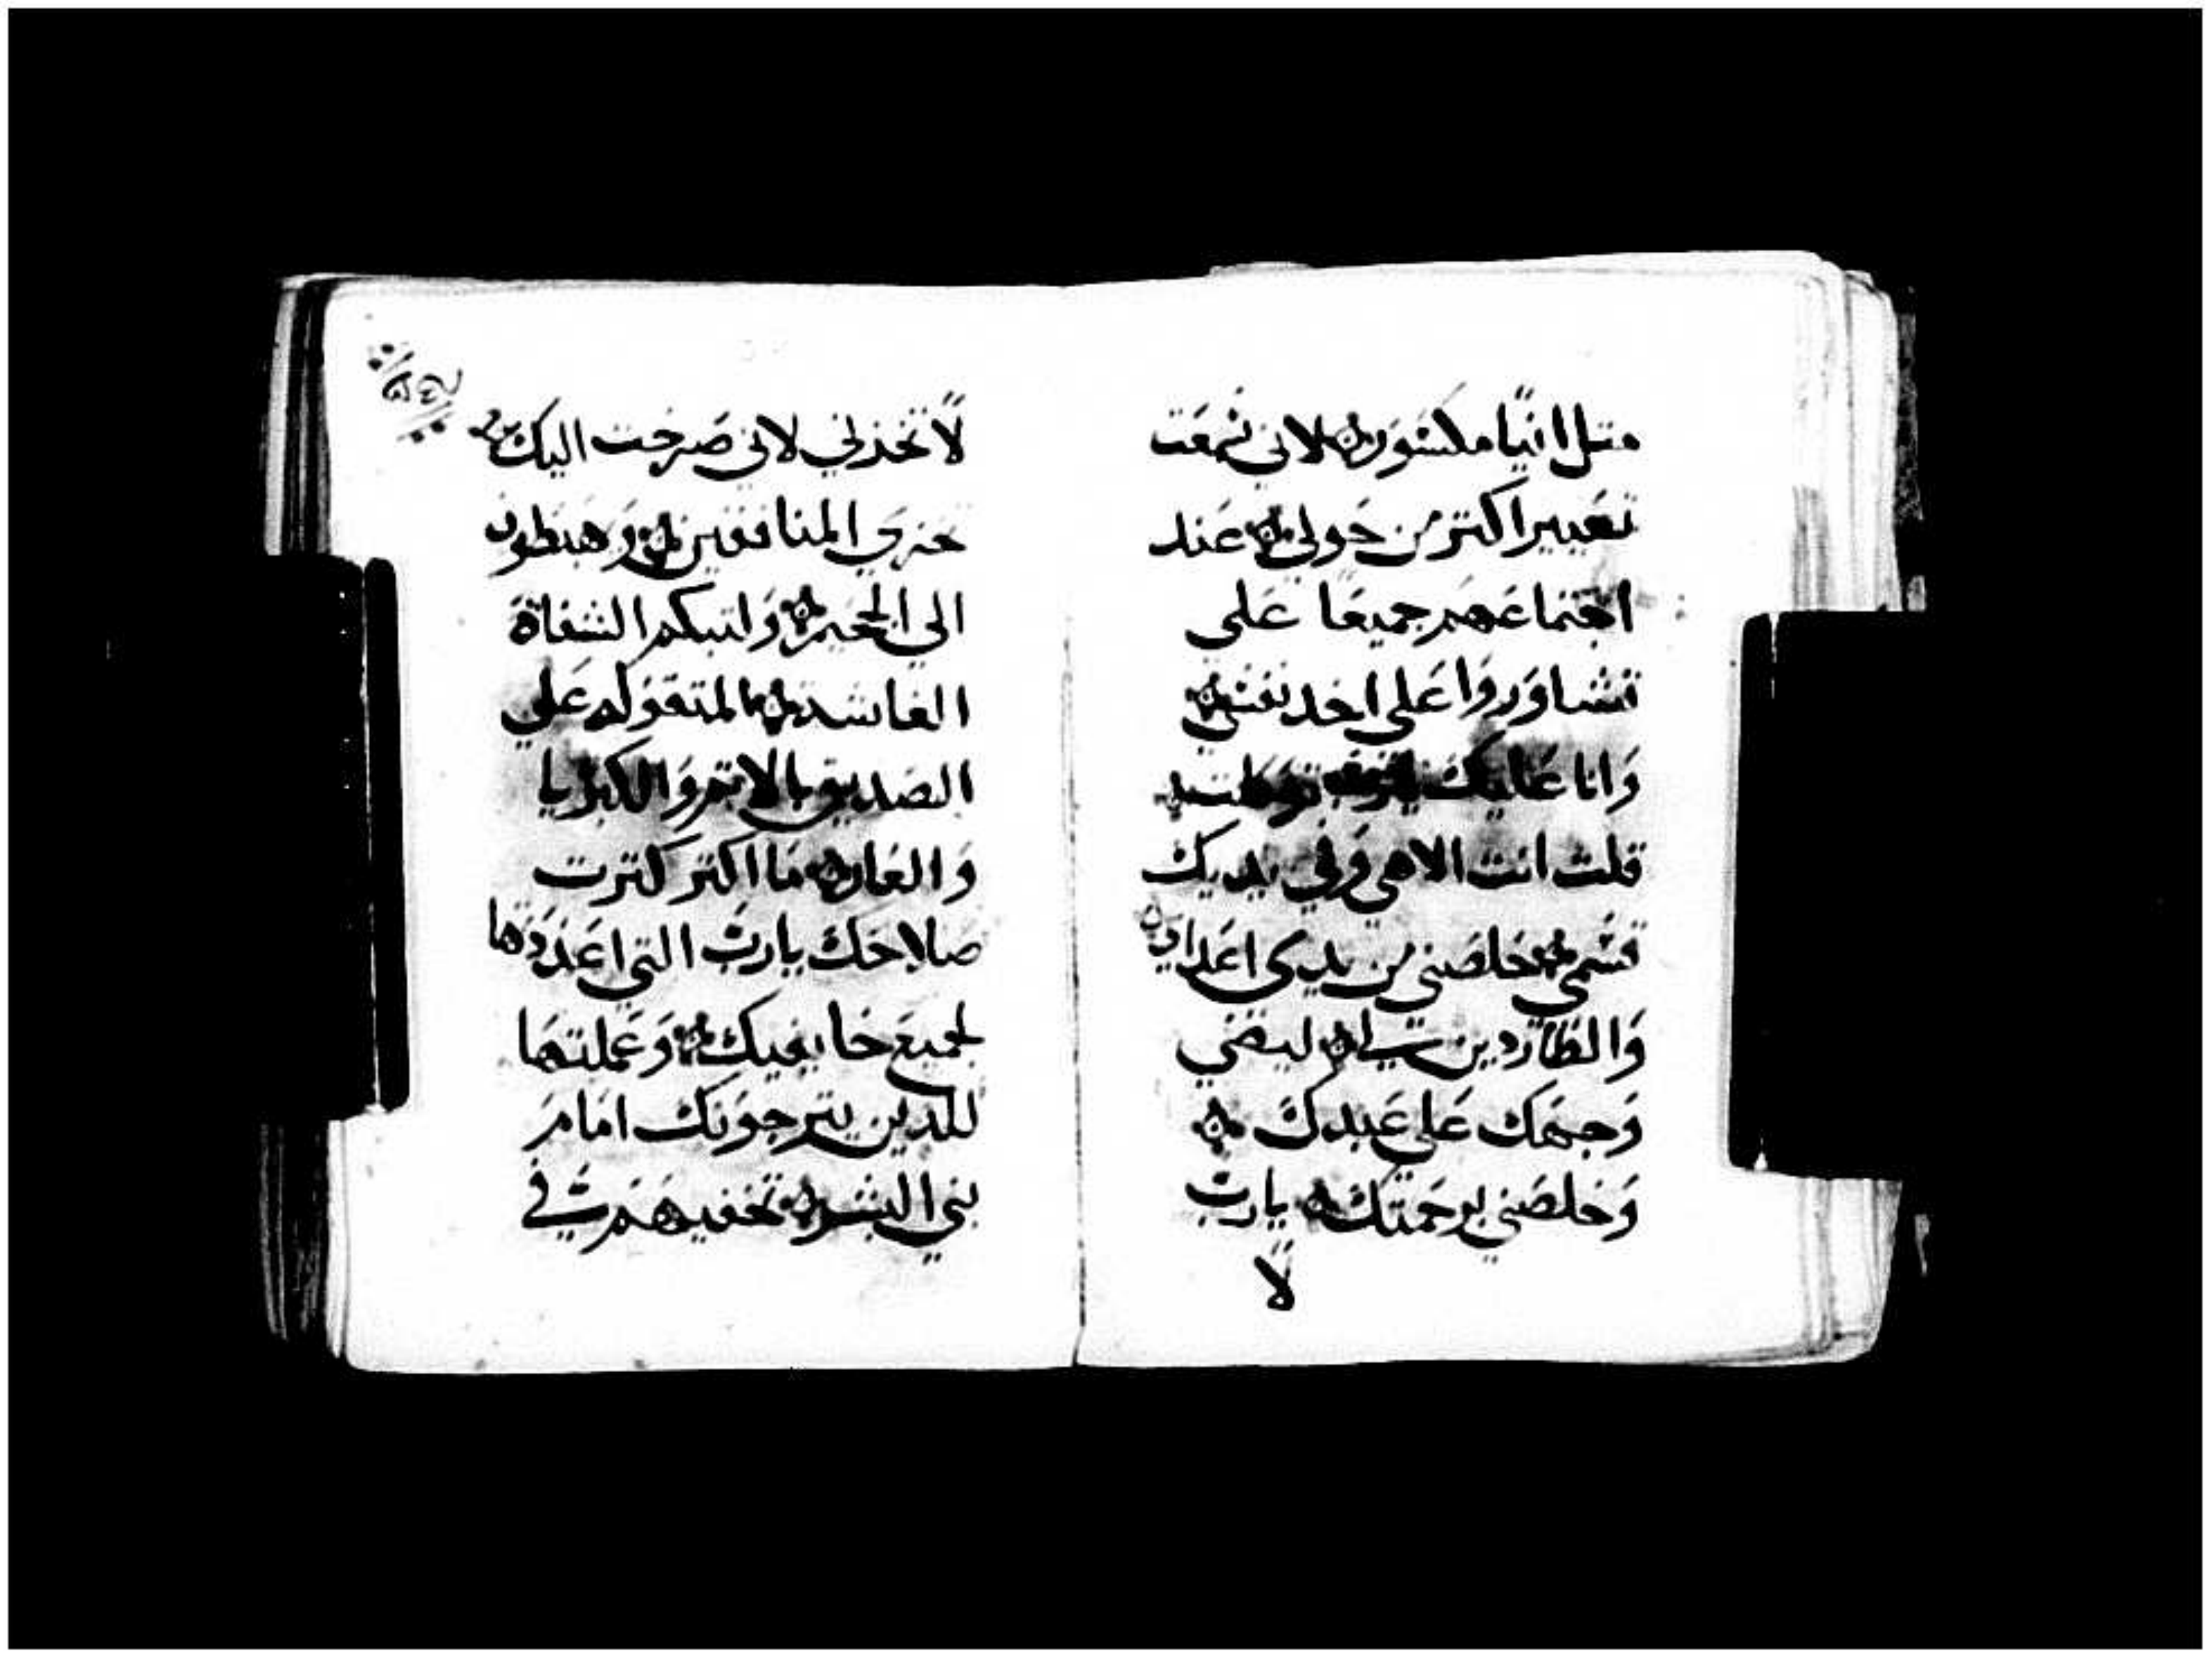 متل انيا مكسور لاني سمعت
تعيير اكتر من حولي عند
اجتماعهم جميعا على
تشاوروا على اخد نفسي
وانا عليك توكلت
قلت انت الاهي وفي يديك
قسمي خلصني من يدي اعداي
والطاردين لي ليضي
وجهك على عبدك
وخلصني برحمتك يارب
لا
لا تخذني لاني صرخت اليك
خزي المنافقين وهبطون
الى الجحيم ولتبكم الشفاة
الغاشه المتقوله على
الصديق بالاتم والكبريا
والعار ما اكتر كترت
صلاحك يارب التي اعددتها
لجميع خايفيك وعملتها
للدين يترجونك امام
بني البشر تخفيهم في